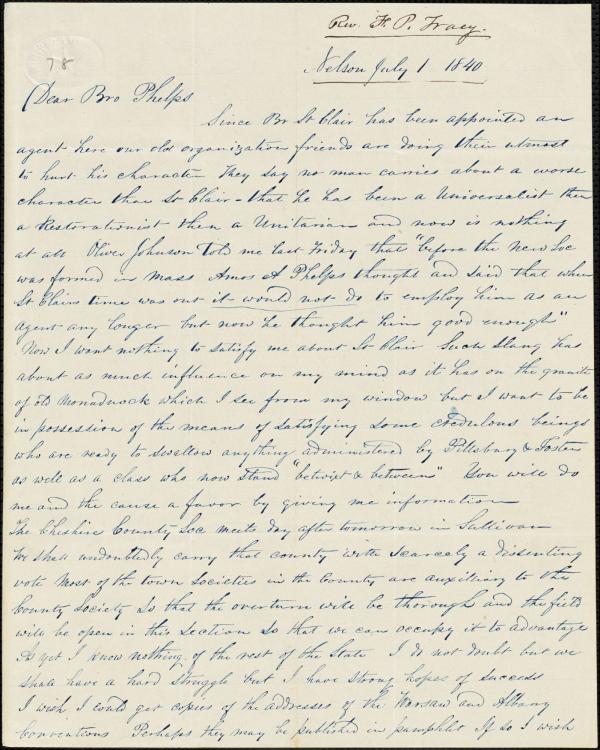 Rev. F. P. Tracy.
78
Nelson July 1 1840
Dear Bro Phelps
Since Br St Clair has been appointed an
agent here our old organization friends are doing their utmost
to hurt his character They say no man carries about a worse
character than St Clair - that he has been a Universalist then
a Restorationist then a Unitarian and now is nothing
at all Oliver Johnson told me last Friday that "before the New Soc
was formed in Mass Amos A Phelps thought and said that when
St Clairs time was out it would not do to employ him as an
agent any longer but now he thought him good enough"
Now I want nothing to satisfy me about St Clair Such slang has
about as much influence on my mind as it has on the granite
of old Monadnock which I see from my window but I want to be
in possession of the means of satisfying some credulous beings
who are ready to swallow anything administered by Pillsbury & Foster
as well as a class who now stand "betwixt & between" You will do
me and the cause a favor by giving me information
The Cheshire County Soc meets day after tomorrow in Sullivan
We shall undoubtedly carry that county with scarcely a dissenting
vote Most of the town Societies in the County are auxiliary to the
County Society So that the overturn will be thorough and the field
will be open in this section So that we can occupy it to advantage
As yet I know nothing of the rest of the State I do not doubt but we
shall have a hard struggle but I have strong hopes of success
I wish I could get copies of the addresses of the Warsaw and Albany
conventions Perhaps they may be published in pamphlet If so I wish